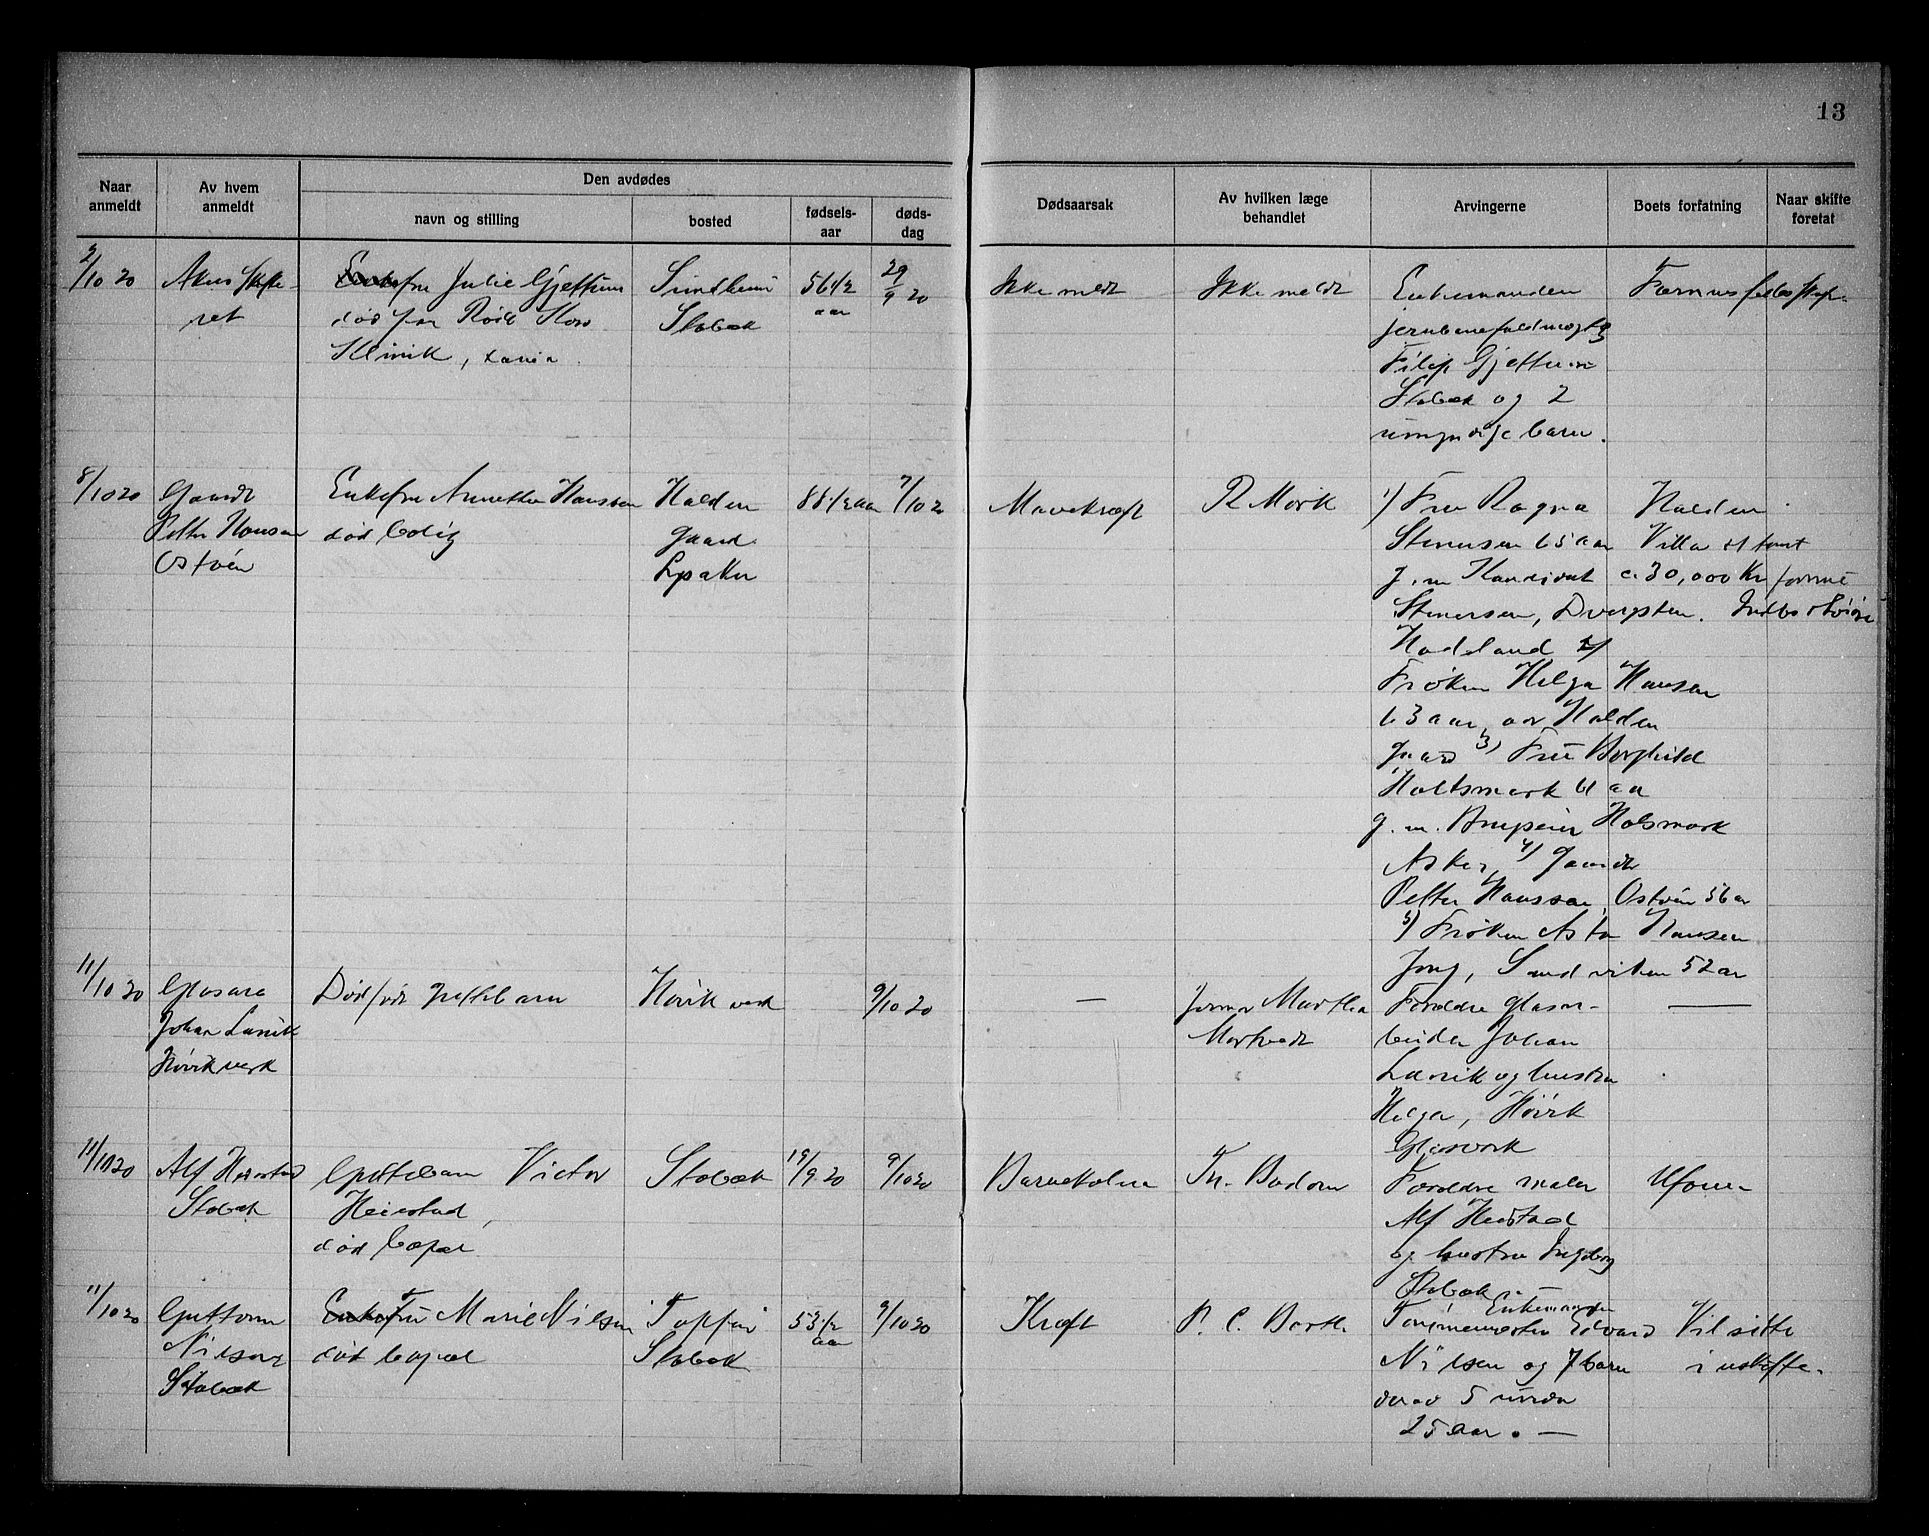 13
Naar anmeldt
Av hvem anmeldt
Den avdødes
navn og stilling
bosted
fødsels-aar
døds-dag
Dødsaarsak
Av hvilken læge behandlet
Arvingerne
Boets forfatning
Naar skifte foretat
2/10 20
Akers skifte-
ret
Enkefru Julie Gjettum
død paa Røde Kors
Klinik,
Stabæk
56 1/2
aar
29/9 20
Ikke meldt
Ikke meldt
Enkemanden
jernbanefuldmægtig
Filip Gjettum
Stabæk og 2
umyndige barn.
8/10 20
Gaardbr
Petter Hansen
Østøen
Enkefru Annette Hanssen
død bolig
Halden
gaard
Lysaker
88 1/2 aar
7/10 20
Mavekræft
R Mørk
1) Fru Ragna
Stenersen 65 aar
g. m Kandidat
Stenersen, Dvergsten.
Hadeland 2)
Frøken Helga Hansen
63 aar, av Halden
gaard 3) Fru Borghild
Holtsmark 61 aar
g. m. Holsmark
Asker 4) Gaardbr
Petter Hanssen, Østøen 56 aar
5) Frøken Asta Hansen
Jong, Sandviken 52 aar
Halden
Villa og tomt
c. 30,000 Kr formue
Indbo
11/10 20
Johan Larvik
Høvik verk
Dødfødt guttebarn
Høvik verk
9/10 20
—
Jormor Martha
Martvedt
Forældre glasar-
beider Johan
Larvik og hustru
Helga, Høvik
Glasverk
—
11/10 20
Alf Heiestad
Stabæk
Guttebarn Victor
Heiestad,
død
Stabæk
19/9 20
9/10 20
Barnekolera
Th. Bodom
Forældre maler
Alf Heistad
og hustru Ingeborg
Stabæk —
Uform-
11/10 20
Guttorm
Nilsen
Stabæk
Enkefru Fru Marie Nilsen
død
Toppen
Stabæk
53 1/2
aar
9/10 20
Kræft
P. C. Barth
Enkemanden
Tømmermester Edvard
Nilsen og 7 barn
derav 5 under
25 aar. —
Vil sidde
i uskifte.